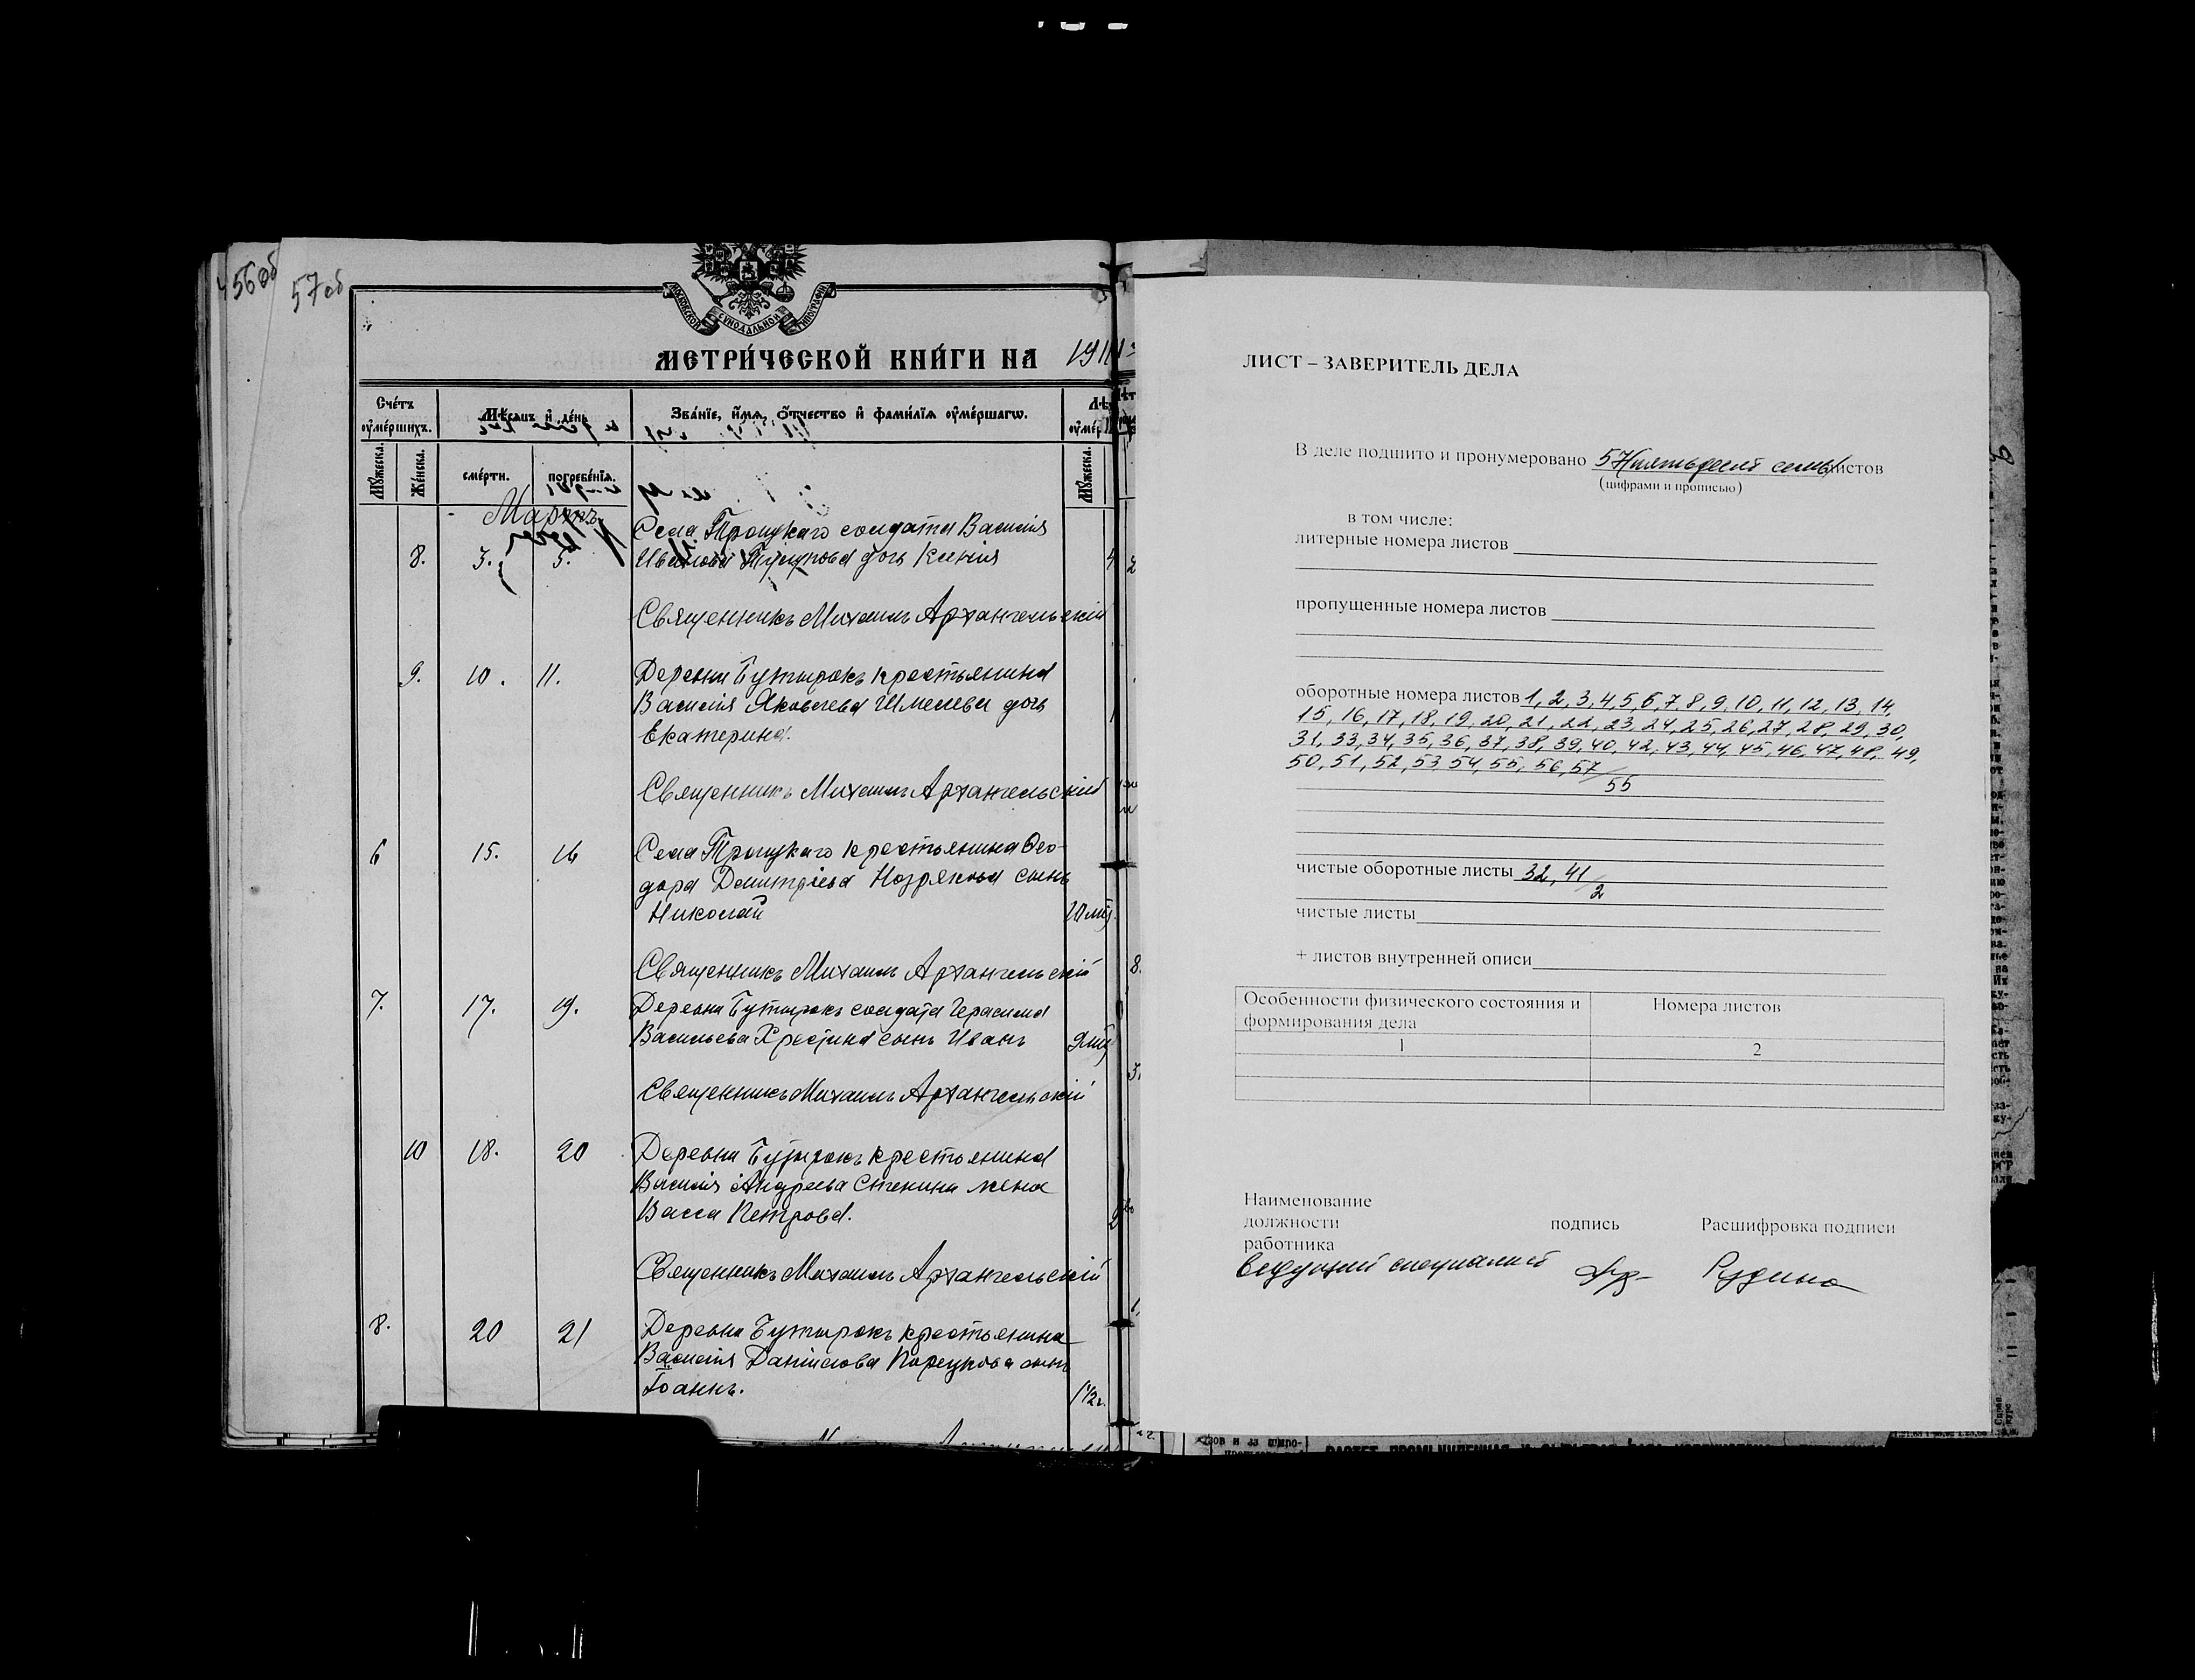 56об
57об
МОСКОВСКОЙ СѴНОДАЛЬНОЙ ТИПОГРАФІИ
МЕТРИ́ЧЕСКОЙ КНИ́ГИ НА 1911
Сче́тъ оу҆ме́ршихъ.
Мѣ́сяцъ и҆ де́нь
Зва́нїе, и҆́мѧ, ѻ҆́тчество и҆ фами́лїѧ оу҆ме́ршагѡ.
Мꙋ́жеска.
Же́нска.
сме́рти.
погребе́нїѧ.
Мꙋ́жеска.
Мартъ
Села Троицкаго солдата Василія
8. 3. 5. Иванова дочь Ксенія
Священникъ Михаилъ Архангельскій
9. 10. 11. Деревни Бутырокъ крестьянина
Василія Яковлева Шмелева дочь
Екатерина.
Священникъ Михаилъ Архангельскій
6 15. 16 Села Троицкаго крестьянина Ѳео-
дора Димитріева Нозрякова сынъ
Николай
Священникъ Михаилъ Архангельскій
7. 17. 19. Деревни Бутырокъ солдата Герасима
Васильева Хрестина сынъ Иванъ
Священникъ Михаилъ Архангельскій
10 18. 20 Деревни Бутырокъ крестьянина
Василія Андреева Стенина жена
Васса Петрова.
Священникъ Михаилъ Архангельскій
8. 20 21 Деревни Бутырокъ крестьянина
Василія Даніилова сынъ
Іоаннъ. 1 1/2 г.
ЛИСТ – ЗАВЕРИТЕЛЬ ДЕЛА
В деле подшито и пронумеровано 57 пятьдесят семь листов
(цифрами и прописью)
в том числе:
литерные номера листов
пропущенные номера листов
оборотные номера листов 1, 2, 3, 4, 5, 6, 7, 8, 9, 10, 11, 12, 13, 14,
15, 16, 17, 18, 19, 20, 21, 22, 23, 24, 25, 26, 27, 28, 29, 30,
31, 33, 34, 35, 36, 37, 38, 39, 40, 42, 43, 44, 45, 46, 47, 48, 49,
50, 51, 52, 53, 54, 55, 56, 57 / 55
чистые оборотные листы 32, 41 / 2
чистые листы
+ листов внутренней описи
Особенности физического состояния и формирования дела
Номера листов
1
2
Наименование
должности
работника
подпись
Расшифровка подписи
ведущий специалист
Рудина